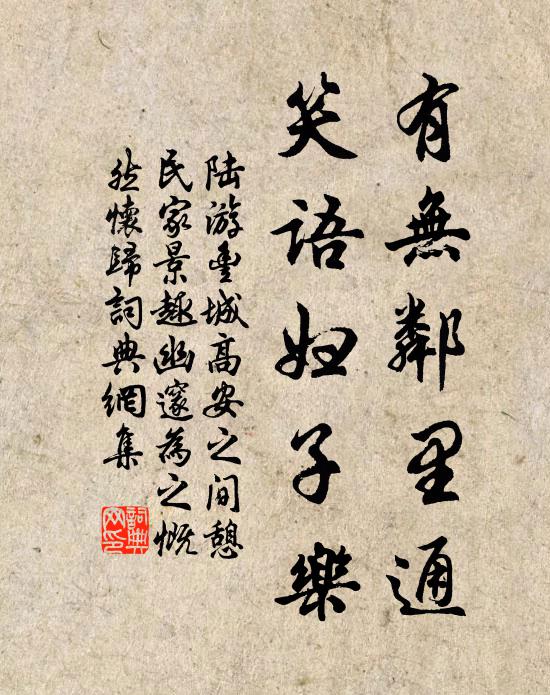 有無鄰里通
笑語婦子樂
陆游豊城高安之间憩
民家景趣幽邃為之慨
然懷歸詞典網集
詞典
网印